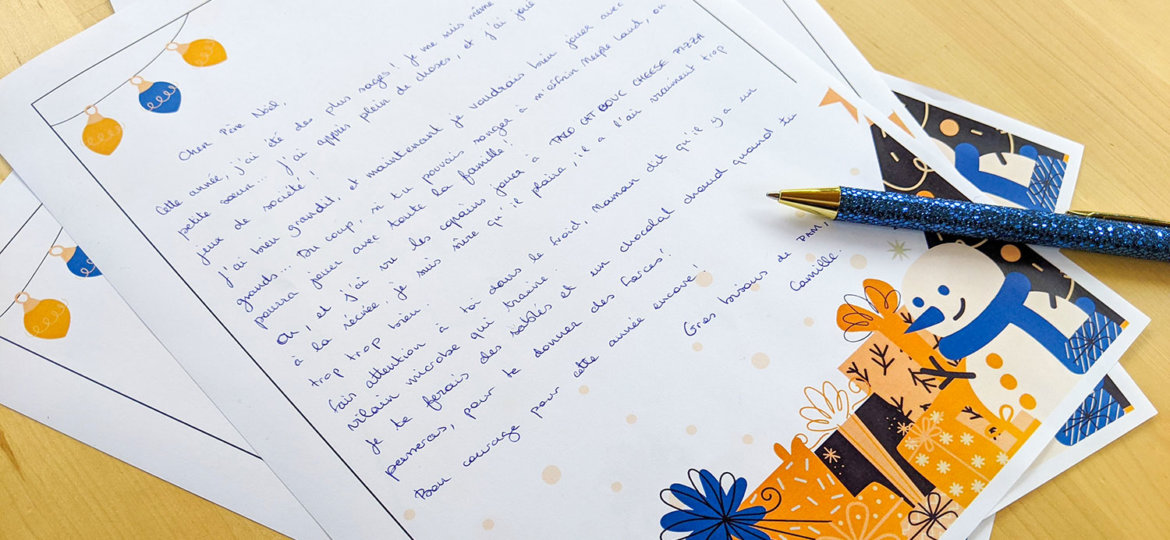 Cher Père Noël,
Cette année, j'ai été des plus sages! Je me suis même
petite sœur... J'ai appris plein de choses, et j'ai joué
jeux de société!
J'ai bien grandit, et maintenant je voudrais bien jouer avec
grands... Du coup, si tu pouvais songer à m'offrir Meeple Land, on
pourra jouer avec toute la famille!
Oh, et j'ai vu les copains jouer à TACO CAT BOUC CHEESE PIZZA
à la récrée, je suis sûre qu'il plaira, il a l'air vraiment trop
trop trop bien!
Fais attention à toi dans le froid, Maman dit qu'il y a un
vilain microbe qui traine!
Je te ferais des sablés et un chocolat chaud quand tu
passeras, pour te donner des forces!
Bon courage pour cette année encore!
Gros bisous de PAM,
Camille.